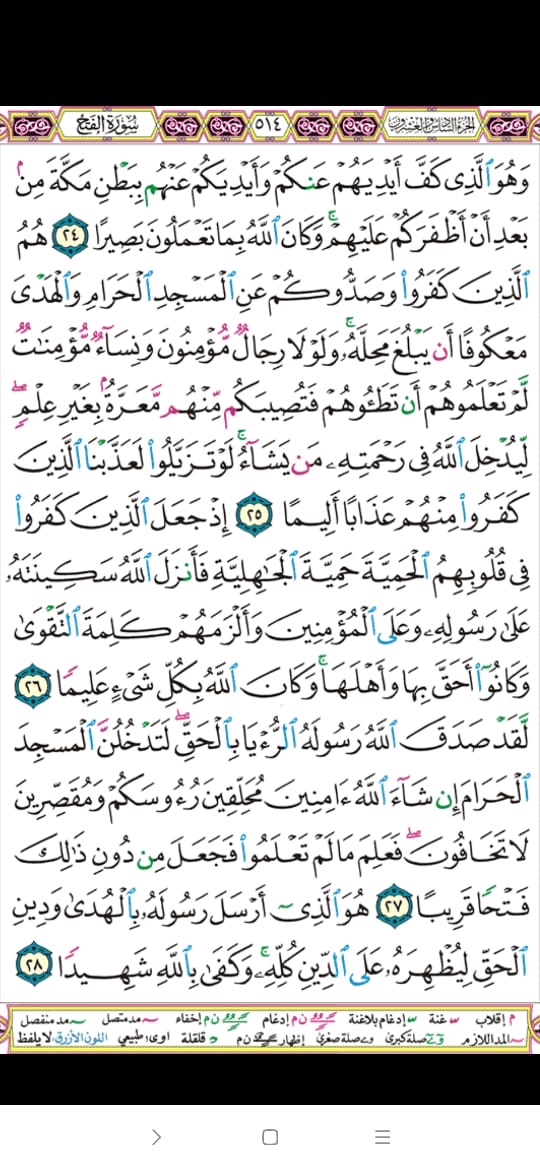 سُورَةُ الفَتْحِ ٥١٤ الجزء السادس والعشرون
وَهُوَ ٱلَّذِى كَفَّ أَيْدِيَهُمْ عَنكُمْ وَأَيْدِيَكُمْ عَنْهُم بِبَطْنِ مَكَّةَ مِنۢ
بَعْدِ أَنْ أَظْفَرَكُمْ عَلَيْهِمْ ۚ وَكَانَ ٱللَّهُ بِمَا تَعْمَلُونَ بَصِيرًا ٢٤ هُمُ
ٱلَّذِينَ كَفَرُوا۟ وَصَدُّوكُمْ عَنِ ٱلْمَسْجِدِ ٱلْحَرَامِ وَٱلْهَدْىَ
مَعْكُوفًا أَن يَبْلُغَ مَحِلَّهُۥ ۚ وَلَوْلَا رِجَالٌ مُّؤْمِنُونَ وَنِسَآءٌ مُّؤْمِنَـٰتٌ
لَّمْ تَعْلَمُوهُمْ أَن تَطَـُٔوهُمْ فَتُصِيبَكُم مِّنْهُم مَّعَرَّةٌۢ بِغَيْرِ عِلْمٍ ۖ
لِّيُدْخِلَ ٱللَّهُ فِى رَحْمَتِهِۦ مَن يَشَآءُ ۚ لَوْ تَزَيَّلُوا۟ لَعَذَّبْنَا ٱلَّذِينَ
كَفَرُوا۟ مِنْهُمْ عَذَابًا أَلِيمًا ٢٥ إِذْ جَعَلَ ٱلَّذِينَ كَفَرُوا۟
فِى قُلُوبِهِمُ ٱلْحَمِيَّةَ حَمِيَّةَ ٱلْجَـٰهِلِيَّةِ فَأَنزَلَ ٱللَّهُ سَكِينَتَهُۥ
عَلَىٰ رَسُولِهِۦ وَعَلَى ٱلْمُؤْمِنِينَ وَأَلْزَمَهُمْ كَلِمَةَ ٱلتَّقْوَىٰ
وَكَانُوٓا۟ أَحَقَّ بِهَا وَأَهْلَهَا ۚ وَكَانَ ٱللَّهُ بِكُلِّ شَىْءٍ عَلِيمًا ٢٦
لَّقَدْ صَدَقَ ٱللَّهُ رَسُولَهُ ٱلرُّءْيَا بِٱلْحَقِّ ۖ لَتَدْخُلُنَّ ٱلْمَسْجِدَ
ٱلْحَرَامَ إِن شَآءَ ٱللَّهُ ءَامِنِينَ مُحَلِّقِينَ رُءُوسَكُمْ وَمُقَصِّرِينَ
لَا تَخَافُونَ ۖ فَعَلِمَ مَا لَمْ تَعْلَمُوا۟ فَجَعَلَ مِن دُونِ ذَٰلِكَ
فَتْحًا قَرِيبًا ٢٧ هُوَ ٱلَّذِىٓ أَرْسَلَ رَسُولَهُۥ بِٱلْهُدَىٰ وَدِينِ
ٱلْحَقِّ لِيُظْهِرَهُۥ عَلَى ٱلدِّينِ كُلِّهِۦ ۚ وَكَفَىٰ بِٱللَّهِ شَهِيدًا ٢٨
م إقلاب غنة إدغام بلاغنة ن م إدغام ن م إخفاء مد متصل مد منفصل
المد اللازم صلة كبرى صلة صغرى إظهار ن م قلقلة اوى طبيعي اللون الأزرق لا يلفظ